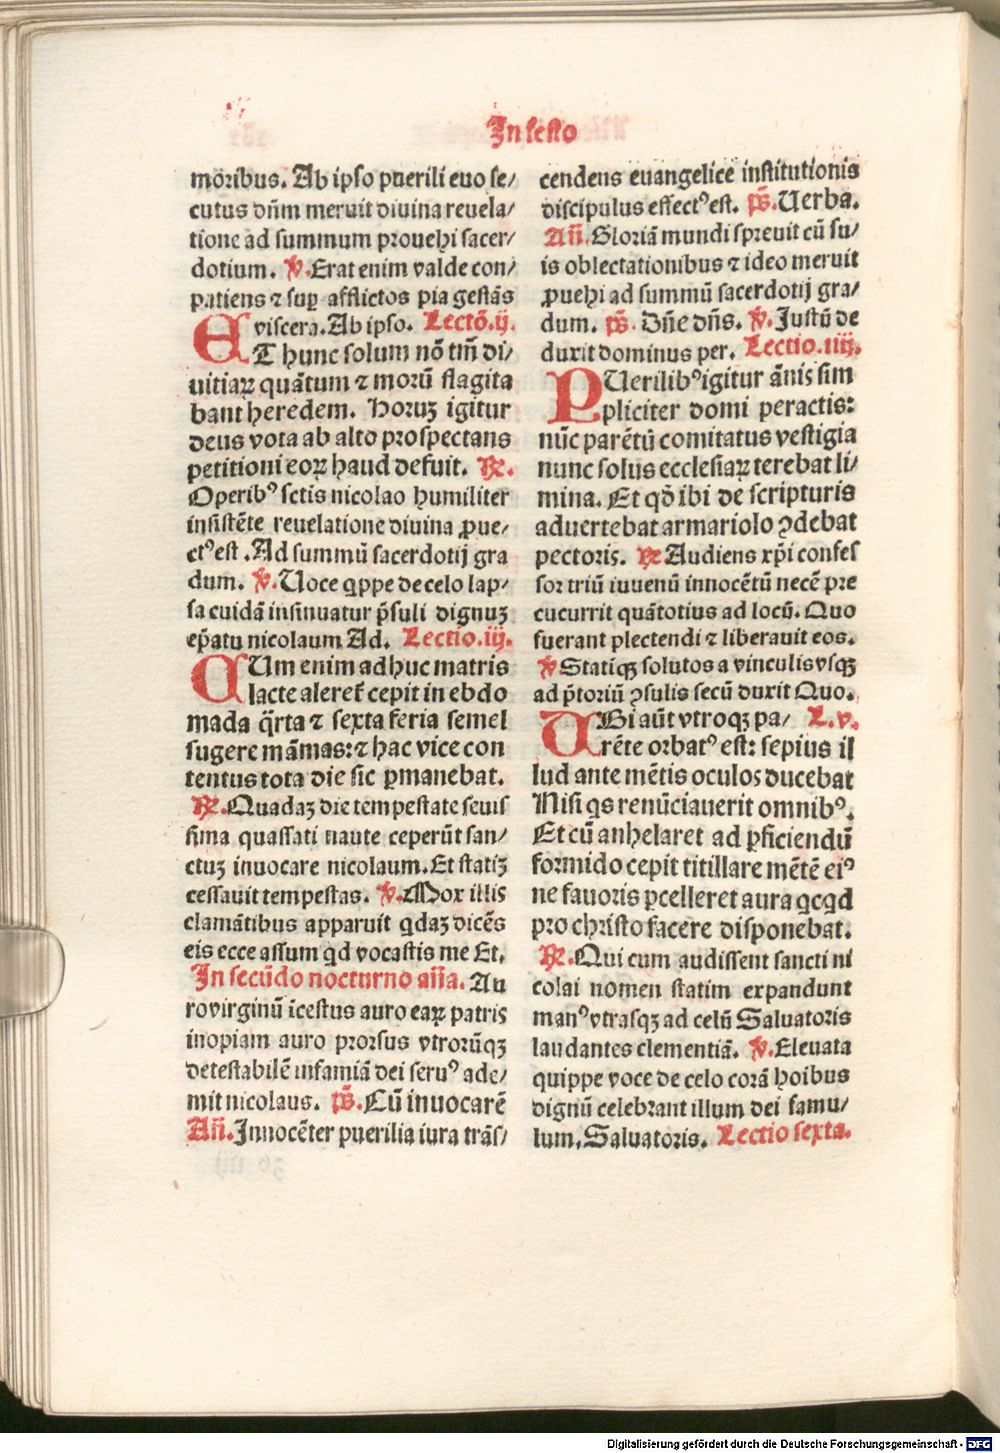 In festo
moribus. Ab ipso puerili euo se/
cutus dñm meruit diuina reuela/
tione ad summum prouehi sacer/
dotium. ℣. Erat enim valde con/
patiens ⁊ suꝑ afflictos pia gestãs
viscera. Ab ipso. Lectõ.ij.
ET hunc solum nõ tm̃ di/
uitiaꝝ quãtum ⁊ morũ flagita
bant heredem. Horuꝫ igitur
deus vota ab alto prospectans
petitioni eoꝝ haud defuit. ℟.
Operibꝰ sctis nicolao humiliter
insistẽte reuelatione diuina ꝓue/
ctꝰ est. Ad summũ sacerdotij gra
dum. ℣. Uoce qppe de celo lap/
sa cuidã insinuatur p̃suli dignuꝫ
ep̃atu nicolaum Ad. Lectio.iij.
CUm enim adhuc matris
lacte aleret̃ cepit in ebdo
mada q̃rta ⁊ sexta feria semel
sugere mãmas: ⁊ hac vice con
tentus tota die sic ꝑmanebat.
℟. Quadaꝫ die tempestate seuis
sima quassati naute ceperũt san/
ctuꝫ inuocare nicolaum. Et statiꝫ
cessauit tempestas. ℣. Mox illis
clamãtibus apparuit qdaꝫ dicẽs
eis ecce assum qd vocastis me Et.
In secũdo nocturno aña. Au
ro virginũ ĩcestus auro eaꝝ patris
inopiam auro prorsus vtrorũqꝫ
detestabilẽ infamiã dei seruꝰ ade/
mit nicolaus. p̃s. Cũ inuocarẽ
Añ. Innocẽter puerilia iura trãs/
cendens euangelice institutionis
discipulus effectꝰ est. p̃s. Uerba.
Añ. Gloriã mundi spreuit cũ su/
is oblectationibus ⁊ ideo meruit
ꝓuehi ad summũ sacerdotij gra/
dum. p̃s. Dñe dñs. ℣. Justũ de
duxit dominus per. Lectio.iiij.
PUerilibꝰ igitur ãnis sim
pliciter domi peractis:
nũc parẽtũ comitatus vestigia
nunc solus ecclesiaꝝ terebat li/
mina. Et qd̃ ibi de scripturis
aduertebat armariolo ꝯdebat
pectoris. ℟ Audiens xp̃i confes
sor triũ iuuenũ innocẽtũ necẽ pre
cucurrit quãtotius ad locũ. Quo
fuerant plectendi ⁊ liberauit eos.
℣ Statiqꝫ solutos a vinculis vsqꝫ
ad p̃toriũ ꝯsulis secũ duxit Quo.
UBi aũt vtroqꝫ pa/ L.v.
rẽte orbatꝰ est: sepius il
lud ante mẽtis oculos ducebat
Nisi qs renũciauerit omnibꝰ.
Et cũ anhelaret ad ꝑficiendũ
formido cepit titillare mẽtẽ eiꝰ
ne fauoris ꝑcelleret aura qcqd
pro christo facere disponebat.
℟. Qui cum audissent sancti ni
colai nomen statim expandunt
manꝰ vtrasqꝫ ad celũ Saluatoris
laudantes clementiã. ℣. Eleuata
quippe voce de celo corã hoibus
dignũ celebrant illum dei famu/
lum. Saluatoris. Lectio sexta.
Digitalisierung gefördert durch die Deutsche Forschungsgemeinschaft - DFG